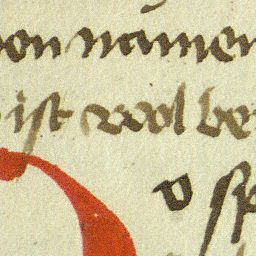 von namen
ist wol be
v sp